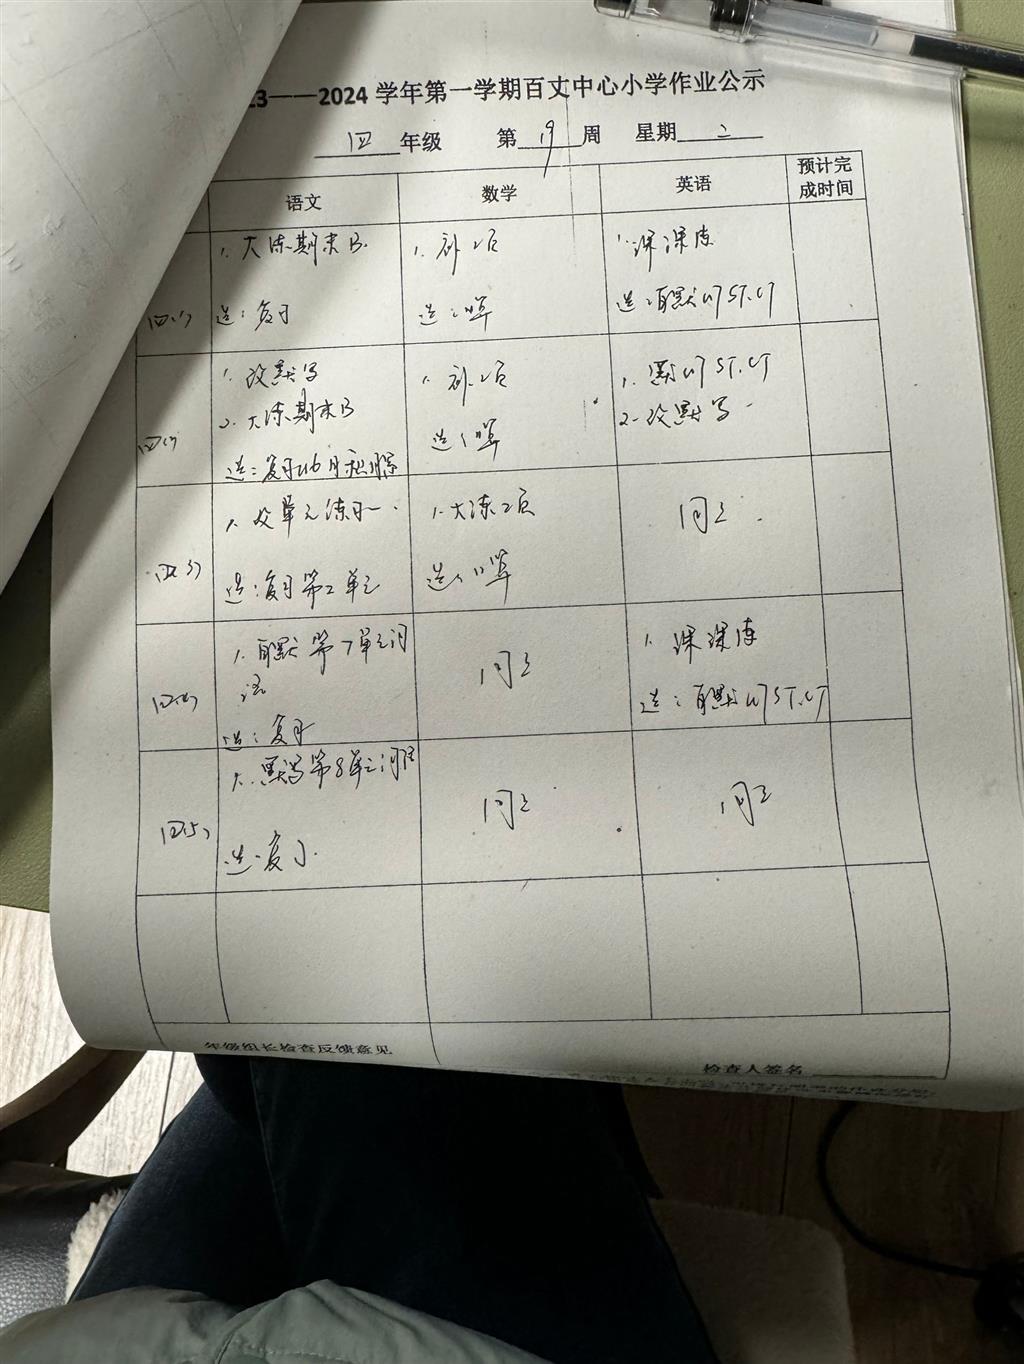 23——2024 学年第一学期百丈中心小学作业公示
四 年级 第 19 周 星期 二
语文 数学 英语 预计完成时间
四(1)
1. 大练期末B.
选：复习
1. 补2页
选：口算
1. 课课练
选：自默U7 ST.CT
四(2)
1. 改默写
2. 大练期末B
选：复习
1. 补2页
选：口算
1. 默U7 ST.CT
2. 改默写
四(3)
1. 单元练习一
选：复习第2单元
1. 大练2页
选：口算
同2
四(4)
1. 自默第7单元词语
选：复习
同2
1. 课课练
选：自默U7 ST.CT
四(5)
1. 默写第8单元词语
选：复习
同2
同2
年级组长检查反馈意见
检查人签名